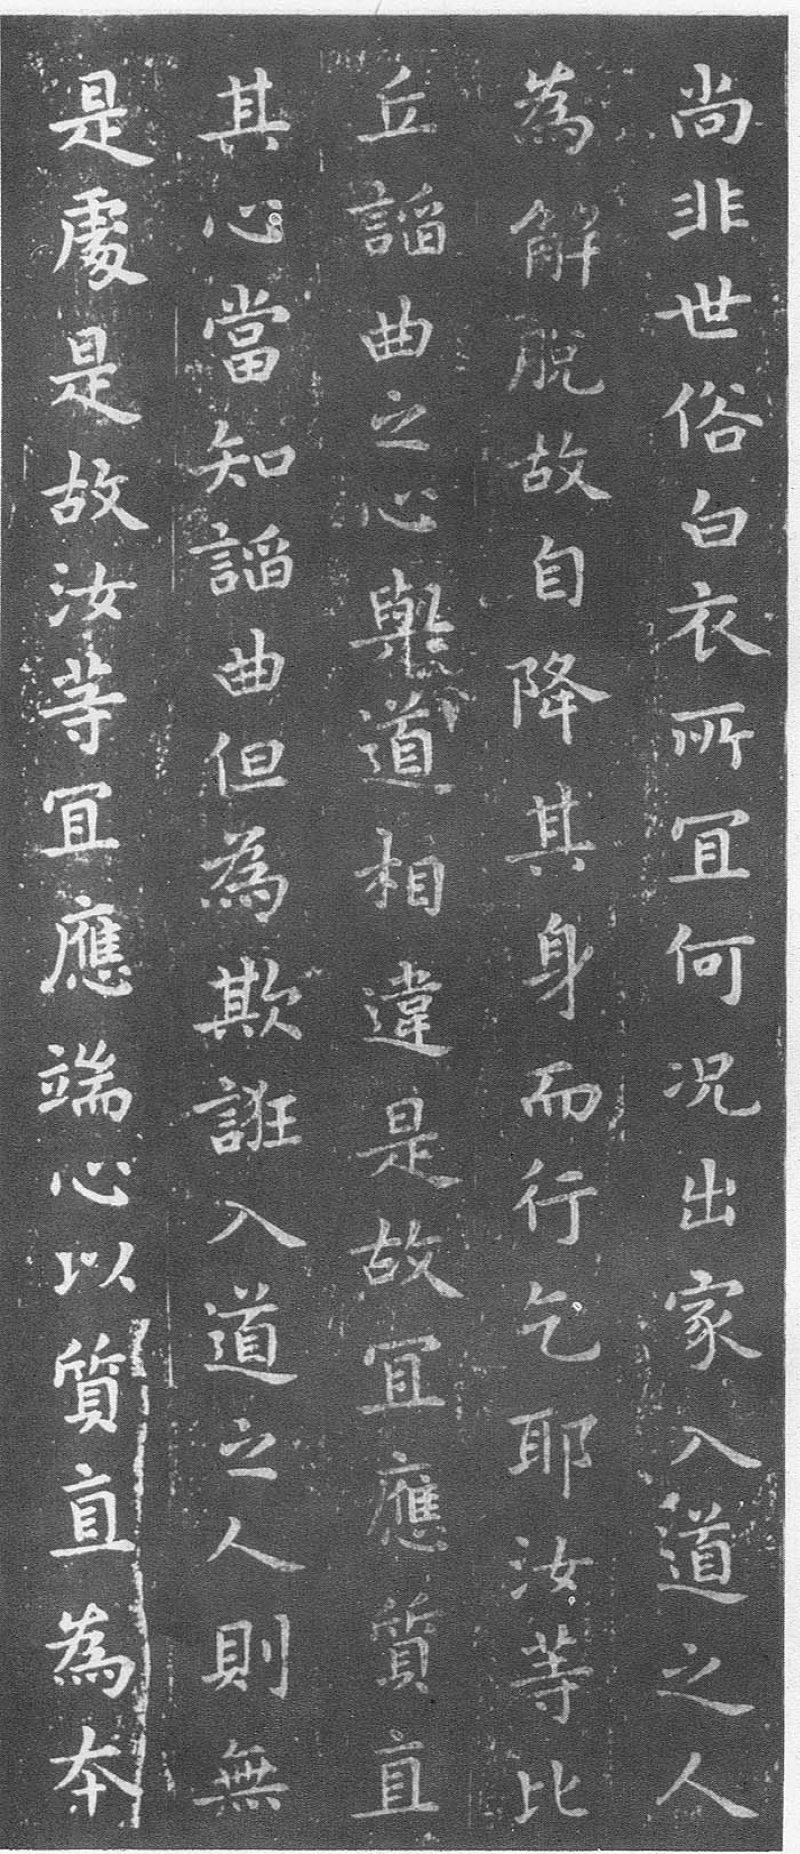 尚非世俗白衣所冝何况出家入道之人
為解脱故自降其身而行乞耶汝等比
丘謟曲之心與道相違是故冝應質直
其心當知謟曲但為欺誑入道之人則無
是處是故汝等冝應端心以質直為本